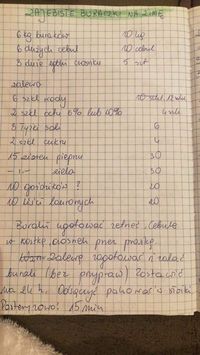 ZAJEBISTE BURACZKI NA ZIMĘ
6 kg buraków 10 kg
6 dużych cebul 10 cebul
3 duże główki czosnku 5 szt
zalewa
6 szkl wody 10 szkl.
2 szkl octu 6% lub 10% 4 szkl
3 łyżki soli 6
2 szkl cukru 4
15 ziaren pieprzu 30
-1- ziela 30
10 goździków ! 20
10 liści laurowych 20
Buraki ugotować zetrzeć. Cebulę
w kostkę, czosnek przez praskę.
Zalewę zagotować i zalać
buraki (bez przypraw) Zostawić
na 24 h. Odsączyć pakować w słoiki
Pasteryzować 15 min